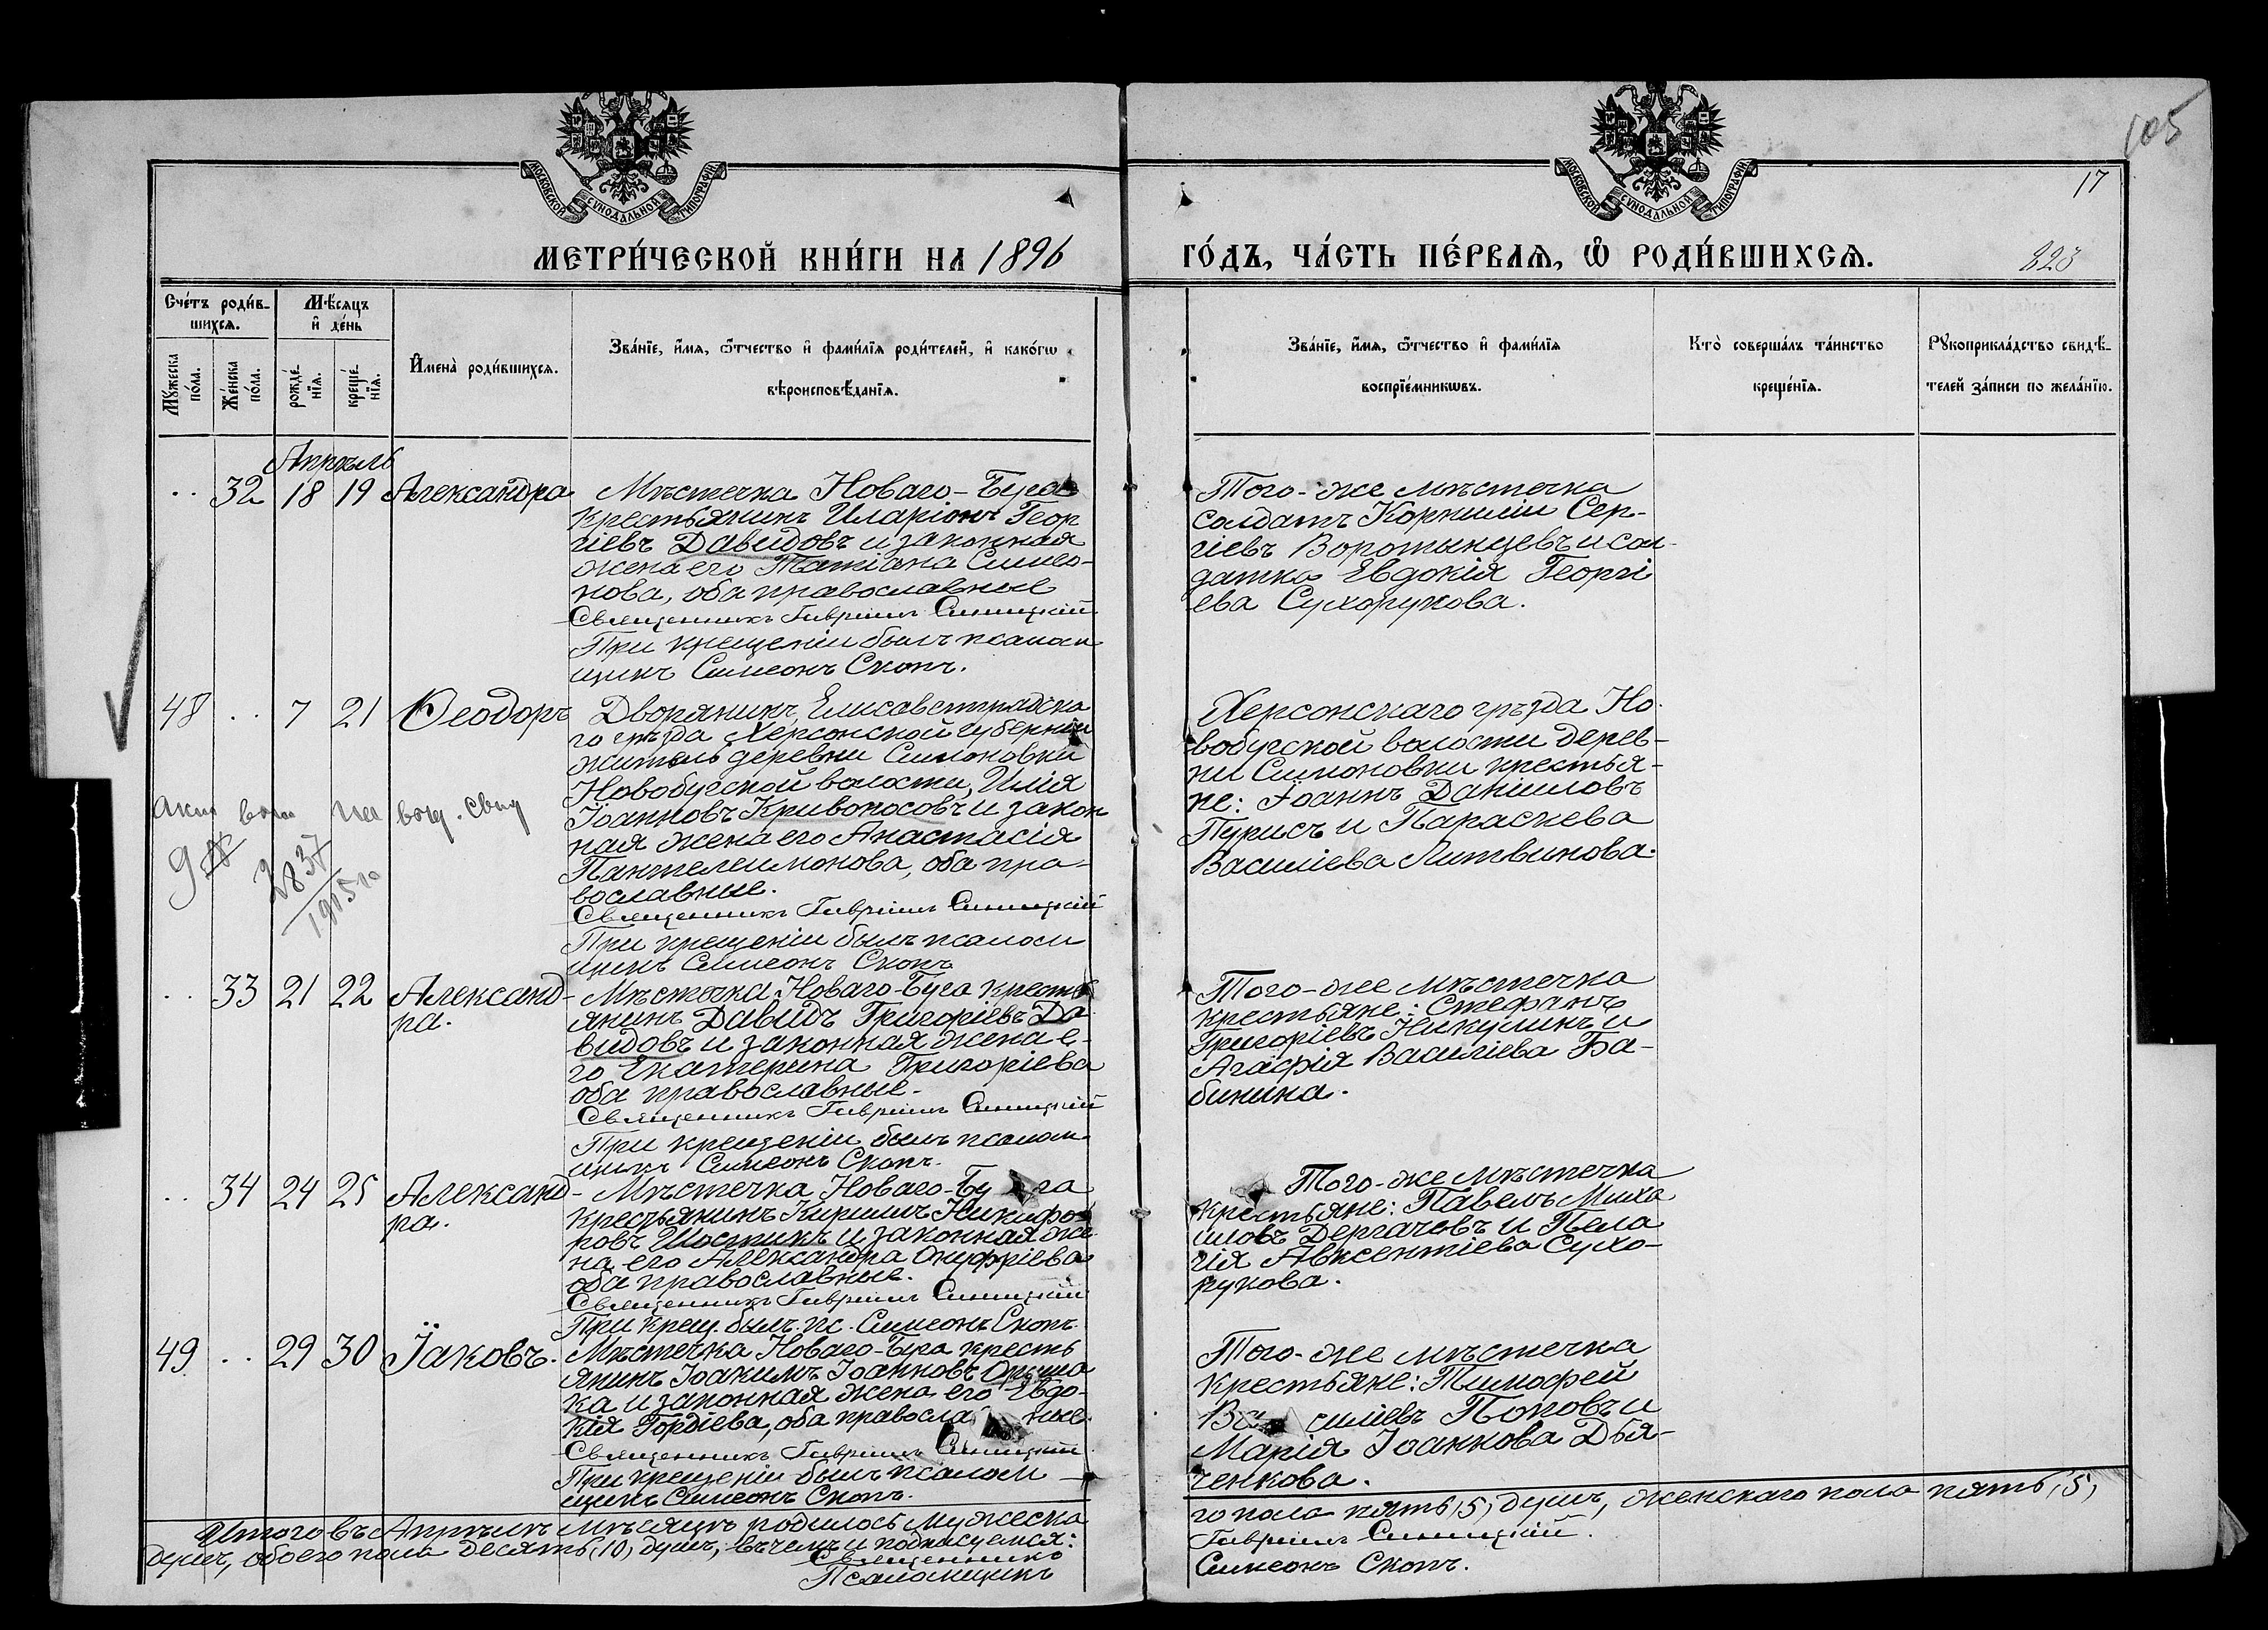 105
17
МОСКОВСКОЙ СУНОДАЛЬНОЙ ТИПОГРАФІИ
МОСКОВСКОЙ СУНОДАЛЬНОЙ ТИПОГРАФІИ
МЕТРИ́ЧЕСКОЙ КНИ́ГИ НА 1896
ГО́ДЪ, ЧА́СТЬ ПЕ́РВАѦ, Ѿ РОДИ́ВШИХСѦ.
823
Сче́тъ роди́в-
шихсѧ.
Мѣ́сѧцъ
и҆ де́нь
Мꙋ́жеска
по́ла.
Же́нска
по́ла.
рожде́-
нїѧ.
креще́-
нїѧ.
И҆мена̀ роди́вшихсѧ.
Зва́нїе, и҆́мѧ, ѻ҆́тчество и҆ фами́лїѧ роди́телей, и҆ како́гѡ
вѣроисповѣ́данїѧ.
Зва́нїе, и҆́мѧ, ѻ҆́тчество и҆ фами́лїѧ
воспрїе́мникѡвъ.
Кто̀ соверша́лъ та́инство
креще́нїѧ.
Рꙋкоприкла́дство свидѣ́-
телей за́писи по жела́нїю.
Апрѣль
.. 32 18 19 Александра
Мѣстечка Новаго-Буга
крестьянинъ Иларіонъ Геор
гіевъ Давидовъ и законная
жена его Татіана Симео-
нова, оба православные
Священникъ Гавріилъ Синицкій
При крещеніи былъ псалом
щикъ Симеонъ Скопъ.
Того-же мѣстечка
солдатъ Корнилій Сер-
гіевъ Воротынцевъ и сол-
датка Евдокія Георгі
ева Сухорукова.
48 .. 7 21 Ѳеодоръ
Дворянинъ Елисаветградска
го уѣзда Херсонской губерніи
житель деревни Симоновки
Новобугской волости, Илія
Іоанновъ Кривоносовъ и закон
ная жена его Анастасія
Пантелеимонова, оба пра-
вославные.
Священникъ Гавріилъ Синицкій
При крещеніи былъ псалом
щикъ Симеонъ Скопъ
Херсонскаго уѣзда Но-
вобугской волости дерев-
ни Симоновки крестья-
не: Іоаннъ Даніиловъ
Пурисъ и Параскева
Василіева Литвинова.
на свид
9 №
2837
1915 го
.. 33 21 22 Александ-
ра.
Мѣстечка Новаго-Буга кресть
янинъ Давидъ Григоріевъ Да-
видовъ и законная жена е-
го Екатерина Григоріева
оба православные.
Священникъ Гавріилъ Синицкій
При крещеніи былъ псалом-
щикъ Симеонъ Скопъ.
Того-же мѣстечка
крестьяне: Стефанъ
Григоріевъ Никулинъ и
Агафія Василіева Ба-
бинина.
.. 34 24 25 Александ-
ра.
Мѣстечка Новаго-Буга
крестьянинъ Кириллъ Никифо-
ровъ Шостикъ и законная же
на его Александра Онуфріева
оба православные.
Священникъ Гавріилъ Синицкій
При крещ. былъ пс. Симеонъ Скопъ.
Того-же мѣстечка
крестьяне: Павелъ Миха
иловъ Дергачовъ и Пела
гія Авксентіева Сухо-
рукова.
49 .. 29 30 Іаковъ.
Мѣстечка Новаго-Буга кресть
янинъ Іоакимъ Іоанновъ
ка и законная жена его Евдо-
кія Гордіева, оба православные.
Священникъ Гавріилъ Синицкій
При крещеніи былъ псалом
щикъ Симеонъ Скопъ.
Того-же мѣстечка
крестьяне: Тимофей
Василіевъ Поповъ и
Марія Іоаннова Дья-
ченкова.
Итого въ Апрѣлѣ мѣсяцѣ родилось мужеска
го пола пять (5) душъ, женскаго пола пять (5)
душъ, обоего пола десять (10) душъ, въ чемъ и подписуемся:
Священникъ
Гавріилъ Синицкій.
Псаломщикъ
Симеонъ Скопъ.